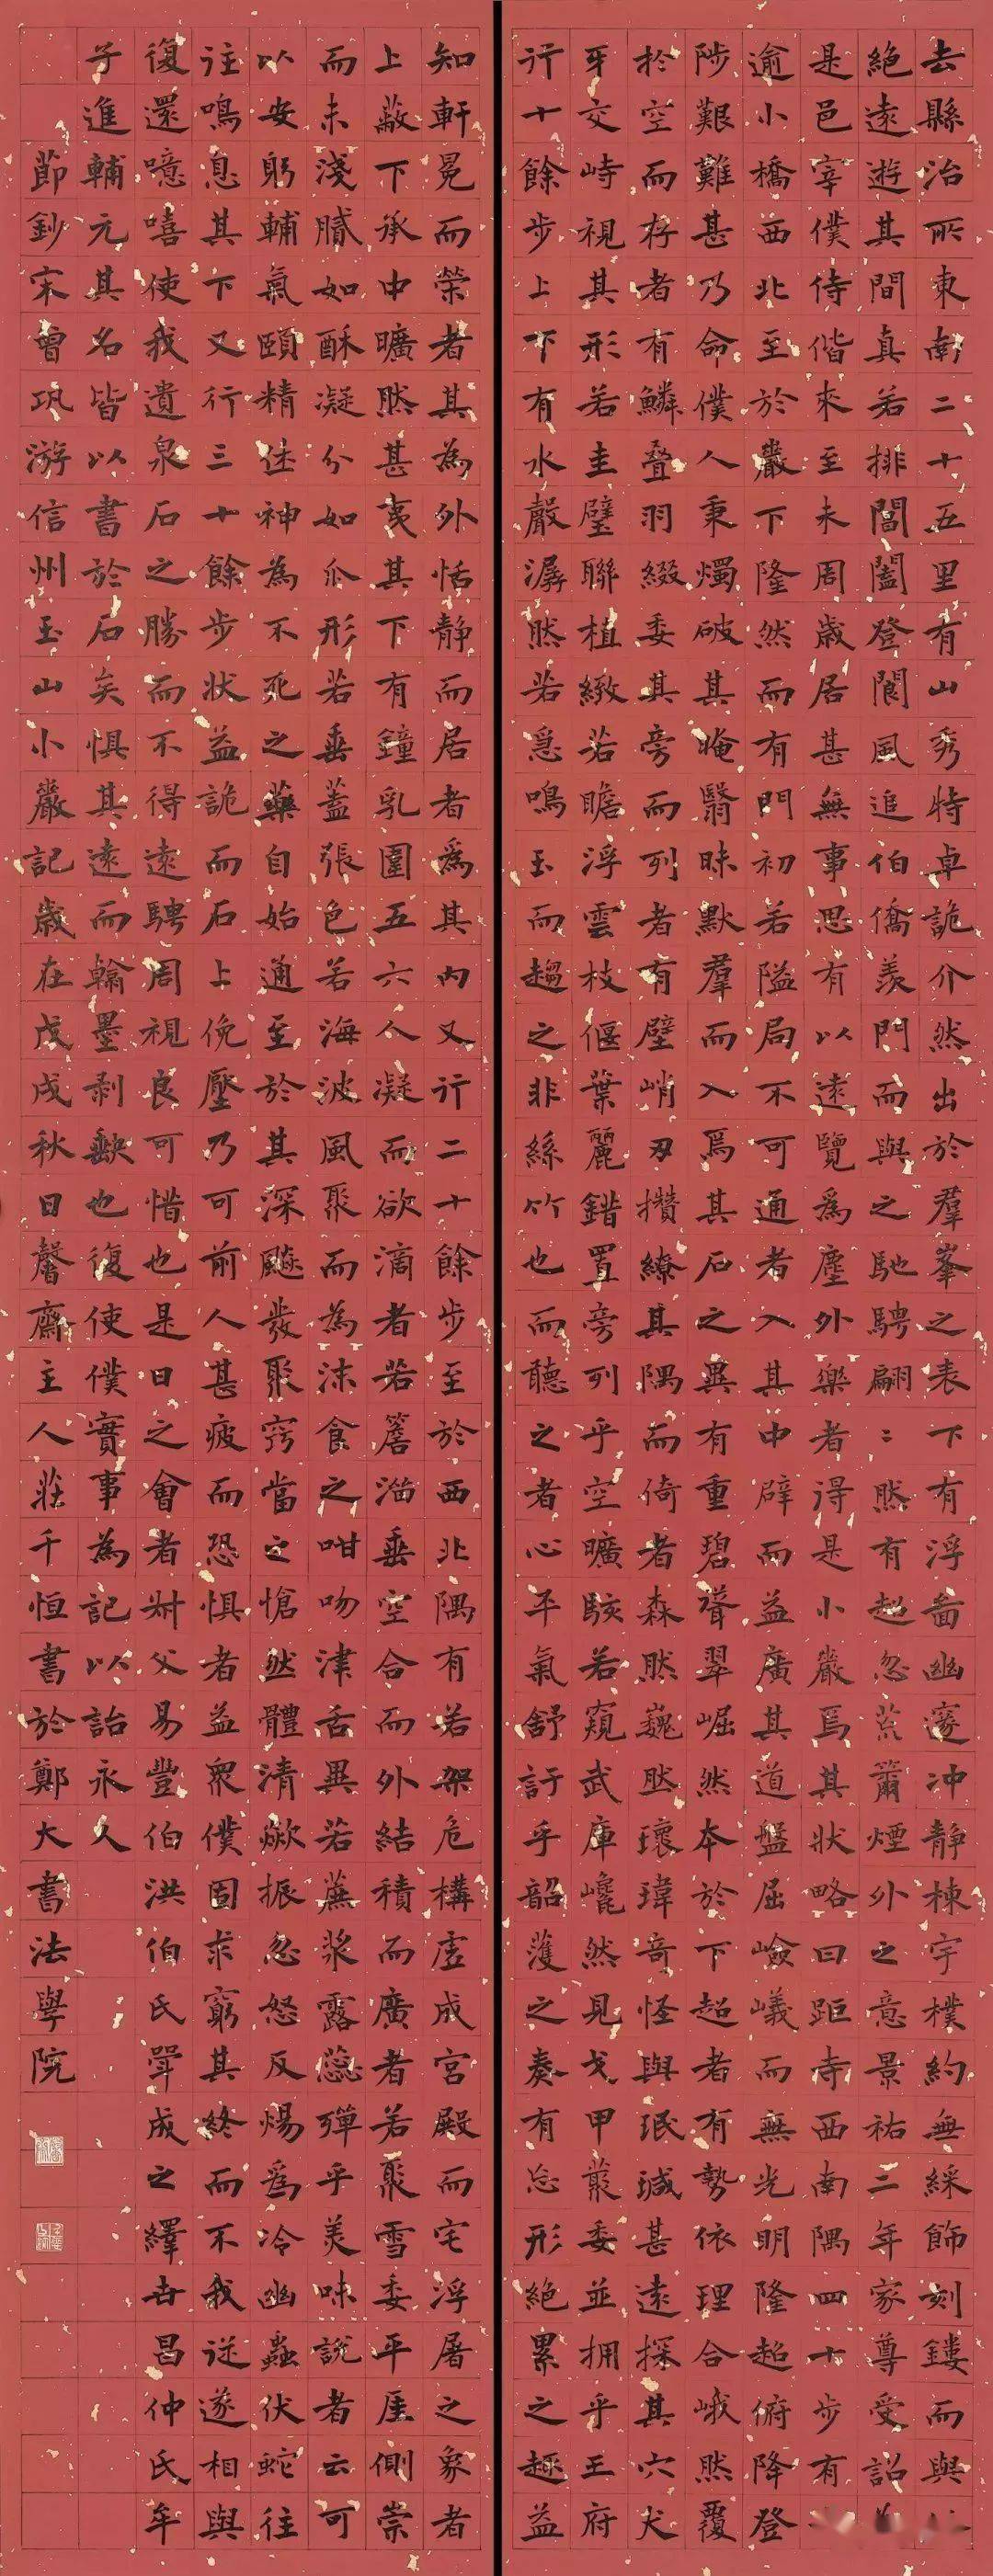 去縣治所東南二十五里有山秀特卓詭介然出於羣峯之表下有浮啚幽邃冲靜棟宇樸約無綵飾刻鏤而與
絕遠遊其間真若排閶闔登閬風追伯僑羨門而與之馳騁翩〻然有超忽荒簫煙外之意景祐二年家尊受詔
是邑宰僕侍偕來至未周歲居甚無事思有以遠覽爲塵外樂者得是小巖焉其狀略曰距寺西南隅四十步有
逾小橋西北至於巖下隆然而有門初若隘局不可通者入其中辟而益廣其道盤屈嶮巇而無光明隆超俯降登
陟艱難甚乃命僕人秉燭破其晻翳昧默羣而入焉其石之異有重碧聳翠崛然本於下超者有勢依理合峨然覆
於空而存者有鱗疊羽綴委其旁而列者有壁峭刃攢繚其隅而倚者森然巍然瓌瑋奇怪與珉瑊甚遠探其穴犬
牙交峙視其形若圭璧聯植緻若瞻浮雲枝偃葉麗錯置旁列乎空曠駭若窺武庫巉然見戈甲叢委並拥乎王府
行十餘步上下有水聲潺然若急鳴玉而趨之非絲竹也而聽之者心平氣舒訏乎韶濩之奏有忘形絕累之趣益
知軒冕而榮者其為外恬靜而居者爲其內又行二十餘步至於西北隅有若架危構虛成宮殿而宅浮屠之象者
上蔽下承中曠然甚夷其下有鐘乳圍五六人凝而欲滴者若簷溜垂空合而外結積而廣者若聚雪委平厓側崇
而未淺膩如酥凝分如瓜形若垂蓋張色若海波風聚而為沫食之咁吻津舌異若蔗漿露蕊殫乎美味說者云可
以安躬輔氣頤精住神為不死之藥自始通至於其深飈發聚窍當之愴然體清歘振忽怒反煬爲冷幽蟲伏蛇往
往鳴息其下又行三十餘步狀益詭而石上俛壓乃可前人甚疲而恐惧者益衆僕固求窮其終而不我送遂相與
復還噫嘻使我遺泉石之勝而不得遠騁周視良可惜也是日之會者尌父易豐伯洪伯氏鞏成之繹女昌仲氏牟
子進輔元其名皆以書於石矣惧其遠而翰墨剥缺也復使僕實事為記以詒永久
節鈔宋曾巩游信州玉山小巖記歲在戊戌秋日馨齋主人莊千恒書於鄭大書法學院